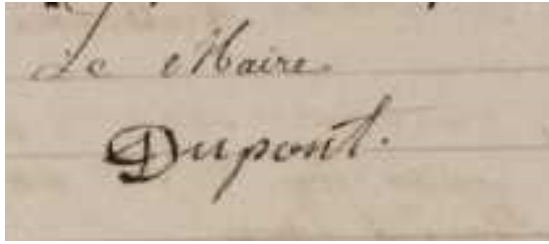 Le Maire
Dupont.